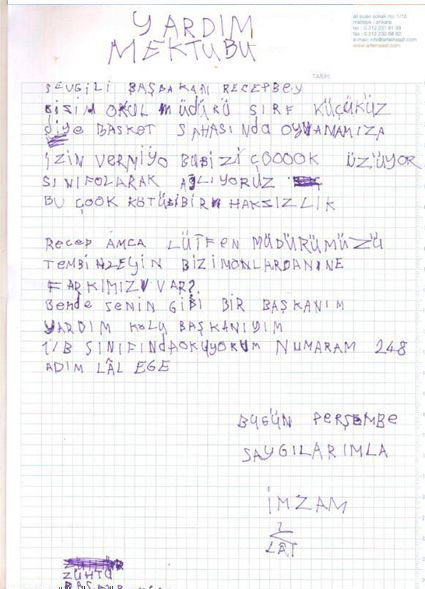 YARDIM
MEKTUBU
ali suavi sokak no: 1/12
maltepe - ankara
tel : 0.312 231 81 33
TARİH:
SEVGİLİ BAŞBAKAN RECEPBEY
BİZİM OKUL MÜDÜRÜ SIRF KÜÇÜKÜZ
diye BASKET SAHASINDA OYNAMAMIZA
İZİN VERMİYO BUBİZİ ÇOOOOK ÜZÜYOR
SINIFOLARAK AĞLIYORUZ
BU ÇOOK KÖTÜBİBİR HAKSIZLIK
RECEP AMCA LÜTFEN MÜDÜRÜMÜZÜ
TEMBİHLEYİN BİZİMONLARDANNE
FARKIMIZ VAR?
BENDE SENİN GİBİ BİR BAŞKANIM
YARDIM KOLU BAŞKANIYIM
1/B SINIFINDAOKUYORUM NUMARAM 248
ADIM LÂL EGE
BUGÜN PERŞEMBE
SAYGILARIMLA
İMZAM
LAT
ZÜHTÜ